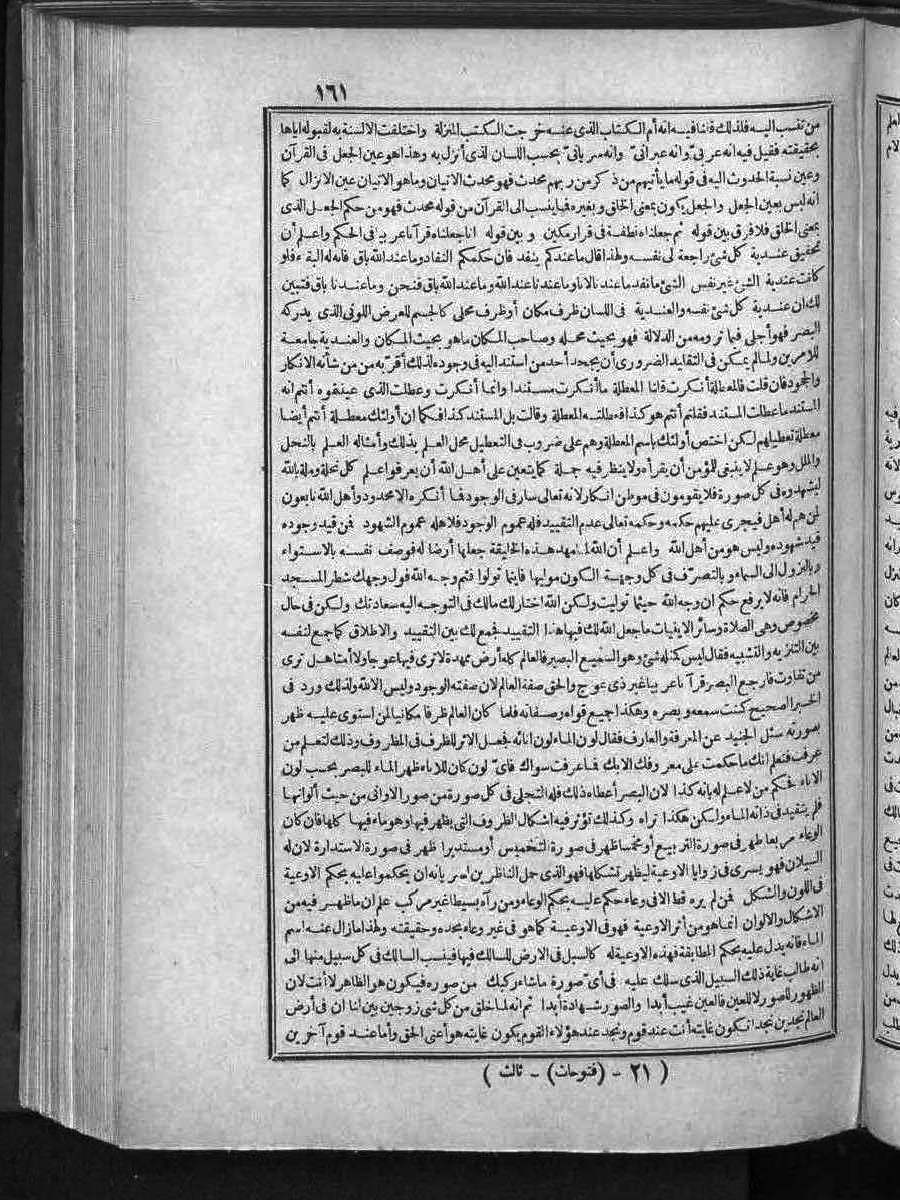 ١٦١
من تنسب اليه فلذلك قلنا فيه انه أم الكتاب الذى عنه خرجت الكتب المنزلة واختلفت الالسنة به لقبوله اياها
بحقيقته فقيل فيه انه عربىّ وانه عبرانىّ وانه سريانىّ بحسب اللسان الذى أنزل به وهذا هو عين الجعل فى القرآن
وعين نسبة الحدوث اليه فى قوله ما يأتيهم من ذكر من ربهم محدث فهو محدث الاتيان وما هو الاتيان عين الانزال كما
انه ليس بعين الجعل والجعل يكون بمعنى الخلق وبغيره فما ينسب الى القرآن من قوله محدث فهو من حكم الجعل الذى
بمعنى الخلق فلا فرق بين قوله ثم جعلناه نطفة فى قرار مكين وبين قوله انا جعلناه قرآنا عربيا فى الحكم واعلم أن
تحقيق عندية كل شئ راجعة الى نفسه ولهذا قال ما عندكم ينفد فان حكمكم النفاد وما عند الله باق فانه له البقاء فلو
كانت عندية الشئ غير نفس الشئ ما نفد ما عندنا لانا وما عندنا عند الله وما عند الله باق فنحن وما عندنا باق فتبين
لك ان عندية كل شئ نفسه والعندية فى اللسان ظرف مكان أو ظرف محلى كالجسم للعرض اللونى الذى يدركه
البصر فهو أجلى فيما ترومه من الدلالة فهو بحيث محله وصاحب المكان ما هو بحيث المكان والعندية جامعة
للامرين ولما لم يمكن فى التقليد الضرورى أن يجحد أحد من استند اليه فى وجوده لذلك أقر به من من شأنه الانكار
والجحود فان قلت فالمعطلة أنكرت قلنا المعطلة ما أنكرت مستندا وانما أنكرت وعطلت الذى عينتموه أنتم انه
المستند ما عطلت المستند فقلتم أنتم هو كذا فعطلته المعطلة وقالت بل المستند كذا فكما ان أولئك معطلة أنتم أيضا
معطلة تعطيلهم لكن اختص أولئك باسم المعطلة وهم على ضروب فى التعطيل محل العلم بذلك وأمثاله العلم بالنحل
والملل وهو علم لا ينبغى للمؤمن أن يقرأه ولا ينظر فيه جملة كما يتعين على أهل الله أن يعرفوا علم كل نحلة وملة بالله
ليشهدوه فى كل صورة فلا يقومون فى موطن انكار لانه تعالى سار فى الوجود فما أنكره الا محدود وأهل الله تابعون
لمن هم له أهل فيجرى عليهم حكمه وحكمه تعالى عدم التقييد فله عموم الوجود فلاهله عموم الشهود فمن قيد وجوده
قيد شهوده وليس هو من أهل الله واعلم أن الله لما مهد هذه الخليقة جعلها أرضا له فوصف نفسه بالاستواء
وبالنزول الى السماء وبالتصرّف فى كل وجهة الكون موليها فاينما تولوا فثم وجه الله فول وجهك شطر المسجد
الحرام فانه لا يرفع حكم ان وجه الله حيثما توليت ولكن الله اختار لك مالك فى التوجه اليه سعادتك ولكن فى حال
مخصوص وهى الصلاة وسائر الاينيات ما جعل الله لك فيها هذا التقييد فجمع لك بين التقييد والاطلاق كما جمع لنفسه
بين التنزيه والتشبيه فقال ليس كمثله شئ وهو السميع البصير فالعالم كله أرض ممهدة لا ترى فيها عوجا ولا أمتا هل ترى
من تفاوت فارجع البصر قرآنا عربيا غير ذى عوج والحق صفة العالم لان صفته الوجود وليس الا الله ولذلك ورد فى
الخبر الصحيح كنت سمعه وبصره وهكذا جميع قواه وصفاته فلما كان العالم ظرفا مكانيا لمن استوى عليه ظهر
بصورته سئل الجنيد عن المعرفة والعارف فقال لون الماء لون انائه فجعل الاثر للظرف فى المظروف وذلك لتعلم من
عرفت فتعلم انك ما حكمت على معروفك الا بك فما عرفت سواك فاىّ لون كان للاناء ظهر الماء للبصر بحسب لون
الاناء فحكم من لا علم له بانه كذا لان البصر أعطاه ذلك فله التجلى فى كل صورة من صور الاوانى من حيث ألوانها
فلم يتقيد فى ذاته الماء ولكن هكذا تراه وكذلك تؤثر فيه اشكال الظروف التى يظهر فيها وهو ماء فيها كلها فان كان
الوعاء مربعا ظهر فى صورة التربيع أو مخمسا ظهر فى صورة التخميس أو مستديرا ظهر فى صورة الاستدارة لان له
السيلان فهو يسرى فى زوايا الاوعية ليظهر تشكلها فهو الذى حمل الناظرين لسريانه ان يحكموا عليه بحكم الاوعية
فى اللون والشكل فمن لم يره قط الا فى وعاء حكم عليه بحكم الوعاء ومن رآه بسيطا غير مركب علم ان ما ظهر فيه من
الاشكال والالوان انما هو من أثر الاوعية فهو فى الاوعية كما هو فى غير وعاء بحده وحقيقته ولهذا ما زال عنه اسم
الماء فانه يدل عليه بحكم المطابقة فهذه الاوعية له كالسبل فى الارض للسالك فيها فينسب السالك فى كل سبيل منها الى
انه طالب غاية ذلك السبيل الذى سلك عليه فى أىّ صورة ما شاء ركبك من صوره فيكون هو الظاهر لا أنت لان
الظهور للصور لا للعين فالعين غيب أبدا والصور شهادة أبدا ثم انه لما خلق من كل شئ زوجين بين لنا ان فى أرض
العالم نجدين نجد انكون غايته أنت عند قوم ونجد عند هؤلاء القوم يكون غايته هو أعنى الحق وأما عند قوم آخرين
( ٢١ - (فتوحات) - ثالث )